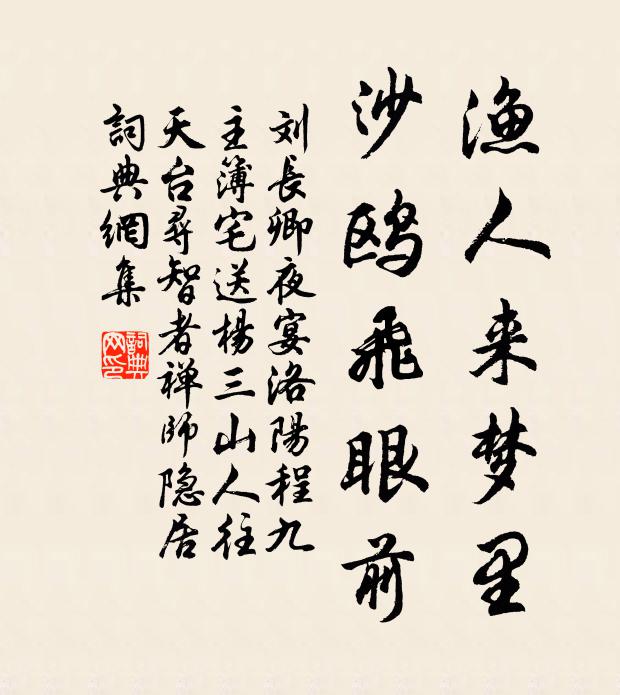 渔人来梦里
沙鸥飛眼前
刘長卿夜宴洛陽程九
主簿宅送楊三山人往
天台尋智者禅师隐居
詞典網集
詞典网印